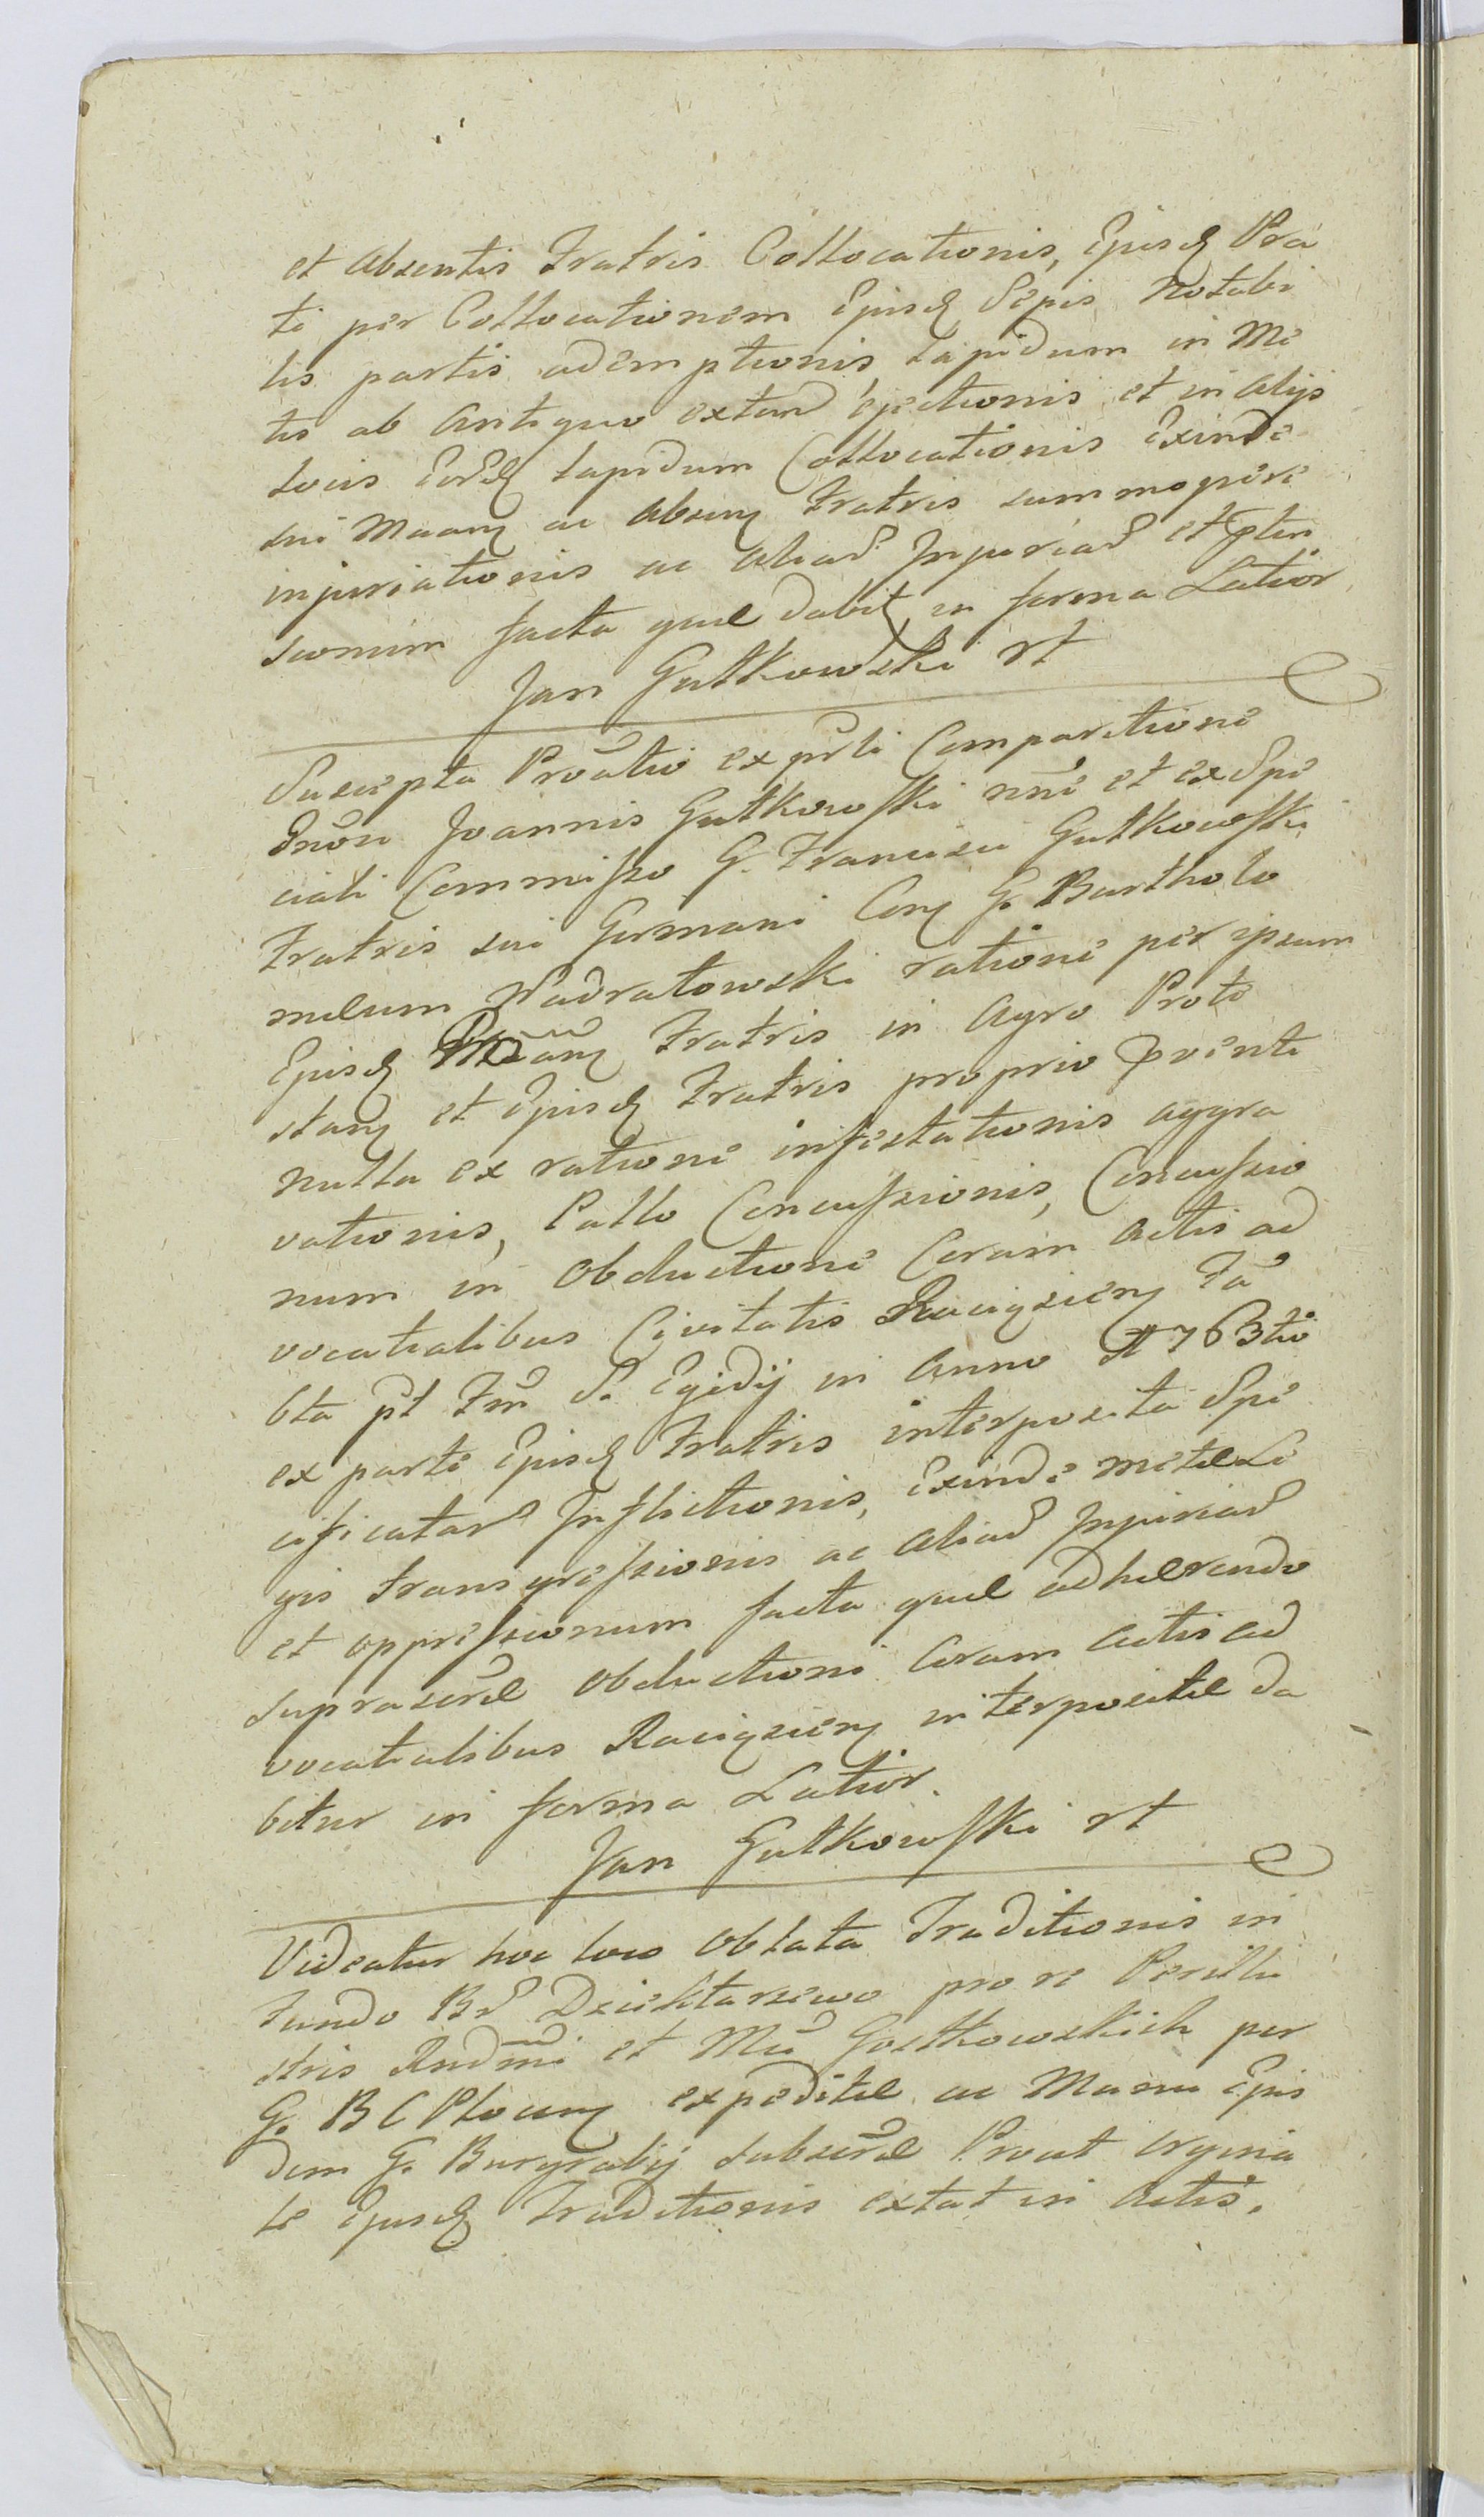 et Absentis Fratris Collocationis, Ejusd Pra
ti per Collocationem Ejusd Sepis Notabi
lis partis ademptionis, Lapidum in Me
tis ab Antiquo extand ejectionis et in alijs
locis Eord Lapidum Collocationis Exinde
sui Maan ac Absen Fratris summopere
injuriationis ac aliad Injuriad et
sionum facta quæ dabit in forma Latior
Jan Gutkowski rt
Suscepta Proãtio ex pñti Comparitione
Gnõsi Joannis Gutkowski nnĩe et ex Spe
ciali Commisso G. Francisci Gutkowski
Fratris sui Germani Con G. Bartholo
mæum Nadratowski ratione per ipsum
Ejusd Fratris in Agro Proti
stan et Ejusd Fratris proprio
nulla ex ratione infestationis aggra
vationis, Pallo Concussionis, Concussio
num in Obductione Coram Actis ad
vocatialibus Civitatis Raciązien Fa
cta pt Fm S. Egidij in Anno 1763tio
ex parte Ejusd Fratris interposita Spe
cificatar Inflictionis, Exinde metæ Le
gis transgressionis ac aliad Injuriad
et oppressionum facta quæ adhærendo
suprascræ obductioni Coram Actis ad
vocatialibus Raciązien interpositæ da
bitur in forma Latior.
Jan Gutkowski rt
Videatur hoc loco Oblata Traditionis in
Fundo Br Dziektarzewo pro re Perillu
stris Rndmĩ et Mci Gostkowskich per
G. B C Plocen expeditæ ac Manu Ejus
dem G. Burgrabij subscræ Prout orgina
le Ejusd Traditionis extat in Actis.